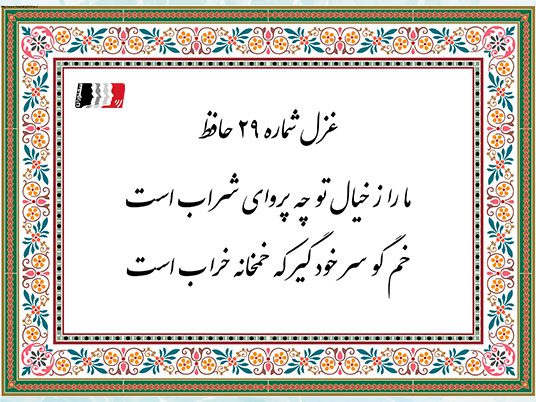 غزل شماره ۲۹ حافظ
ما را ز خیال تو چه پروای شراب است
خم گو سر خود گیر که خمخانه خراب است